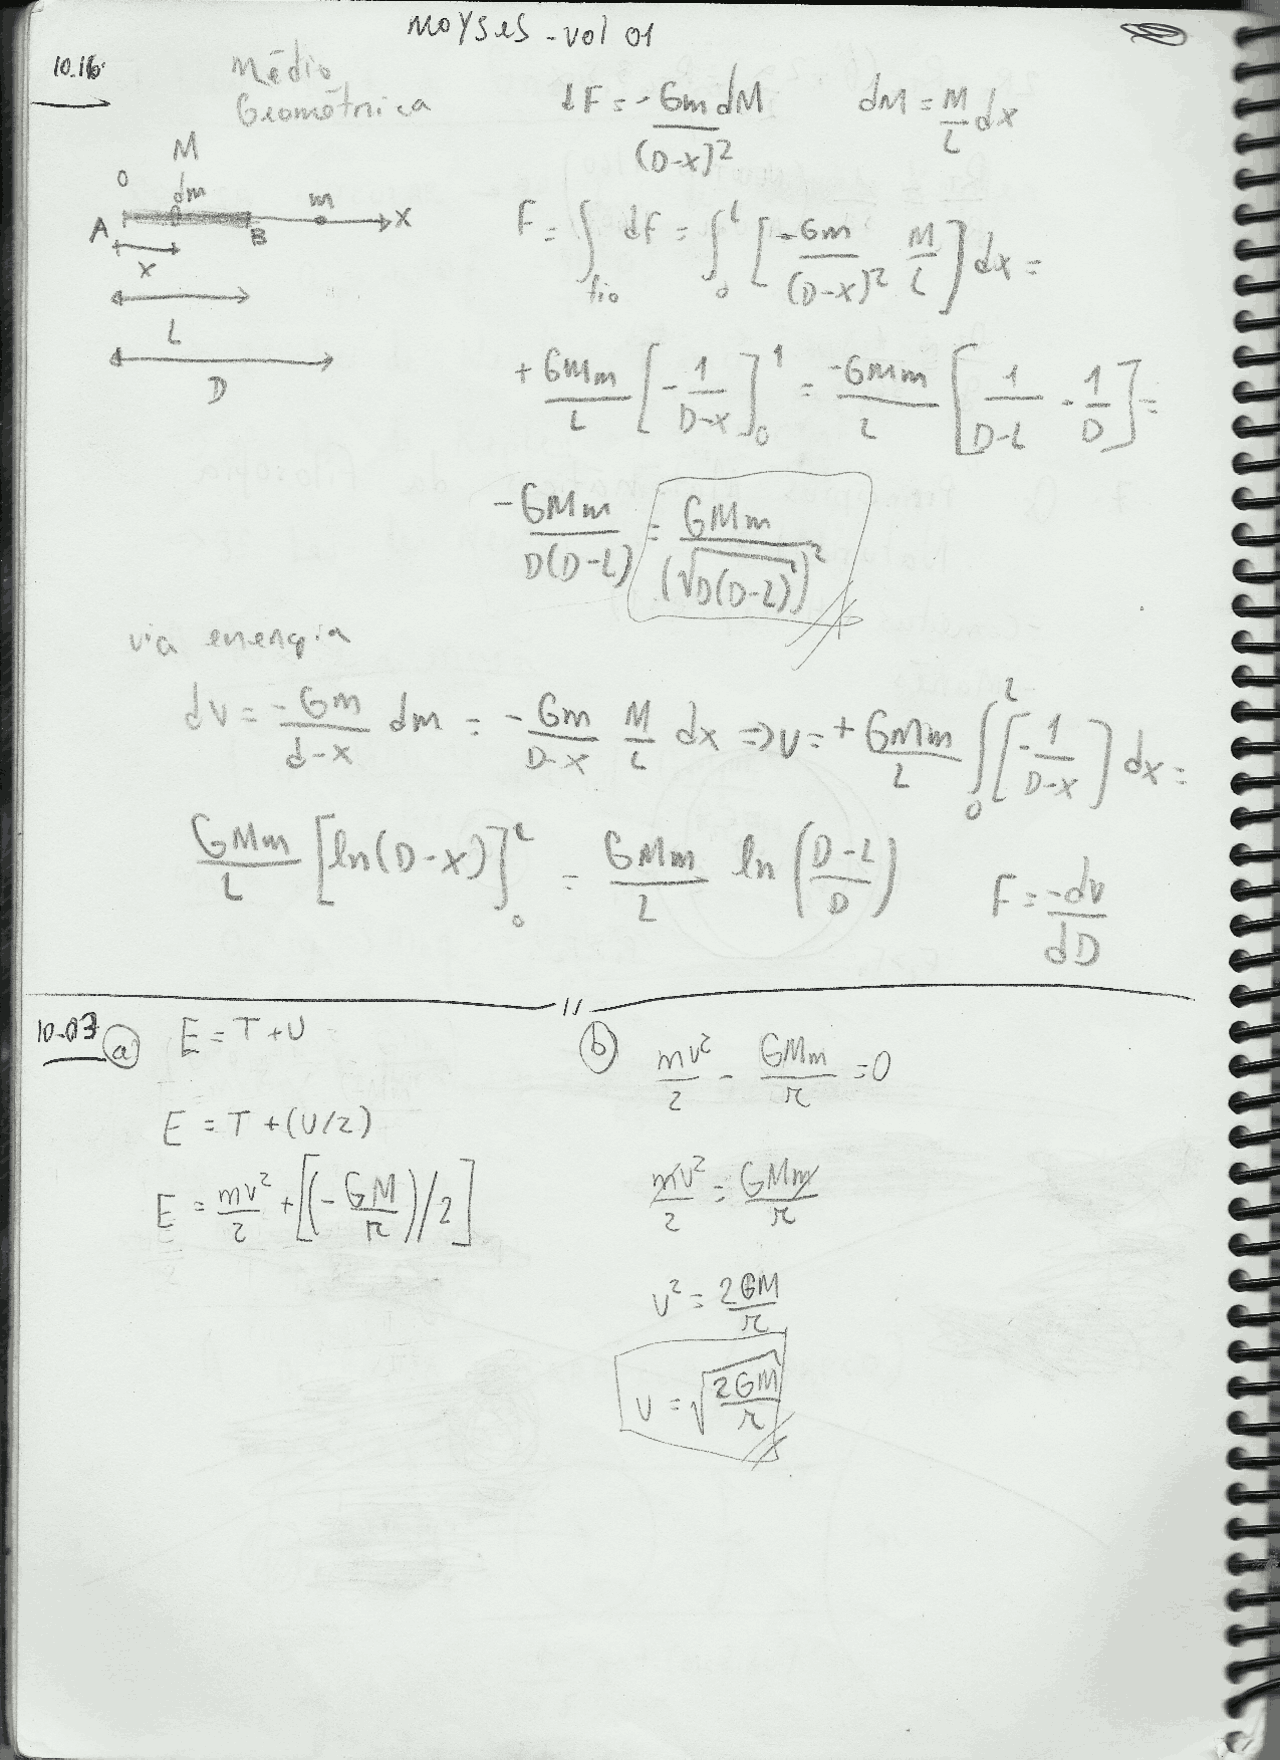 MOYSES - vol 01
10.16
Médio
Geométrica
dF = -GmdM/(D-x)² dM = M/L dx
M
O dm m
A B X
x
L
D
F = ∫fio dF = ∫₀ᴸ [-Gm/(D-x)² M/L] dx =
+GMm/L [-1/D-x]₀¹ = -GMm/L [1/D-L - 1/D] =
-GMm/D(D-L) = GMm/(√D(D-L))²
via energia
dv = -Gm/d-x dm = -Gm/D-x M/L dx ⇒ v = +GMm/L ∫₀ᴸ [-1/D-x] dx =
GMm/L [ln(D-x)]₀ᴸ = GMm/L ln(D-L/D) F = -dv/dD
10-03 a E = T + U
E = T + (U/2)
E = mv²/2 + [(-GM/r)/2]
b mv²/2 - GMm/r = 0
mv²/2 = GMm/r
v² = 2GM/r
v = √2GM/r